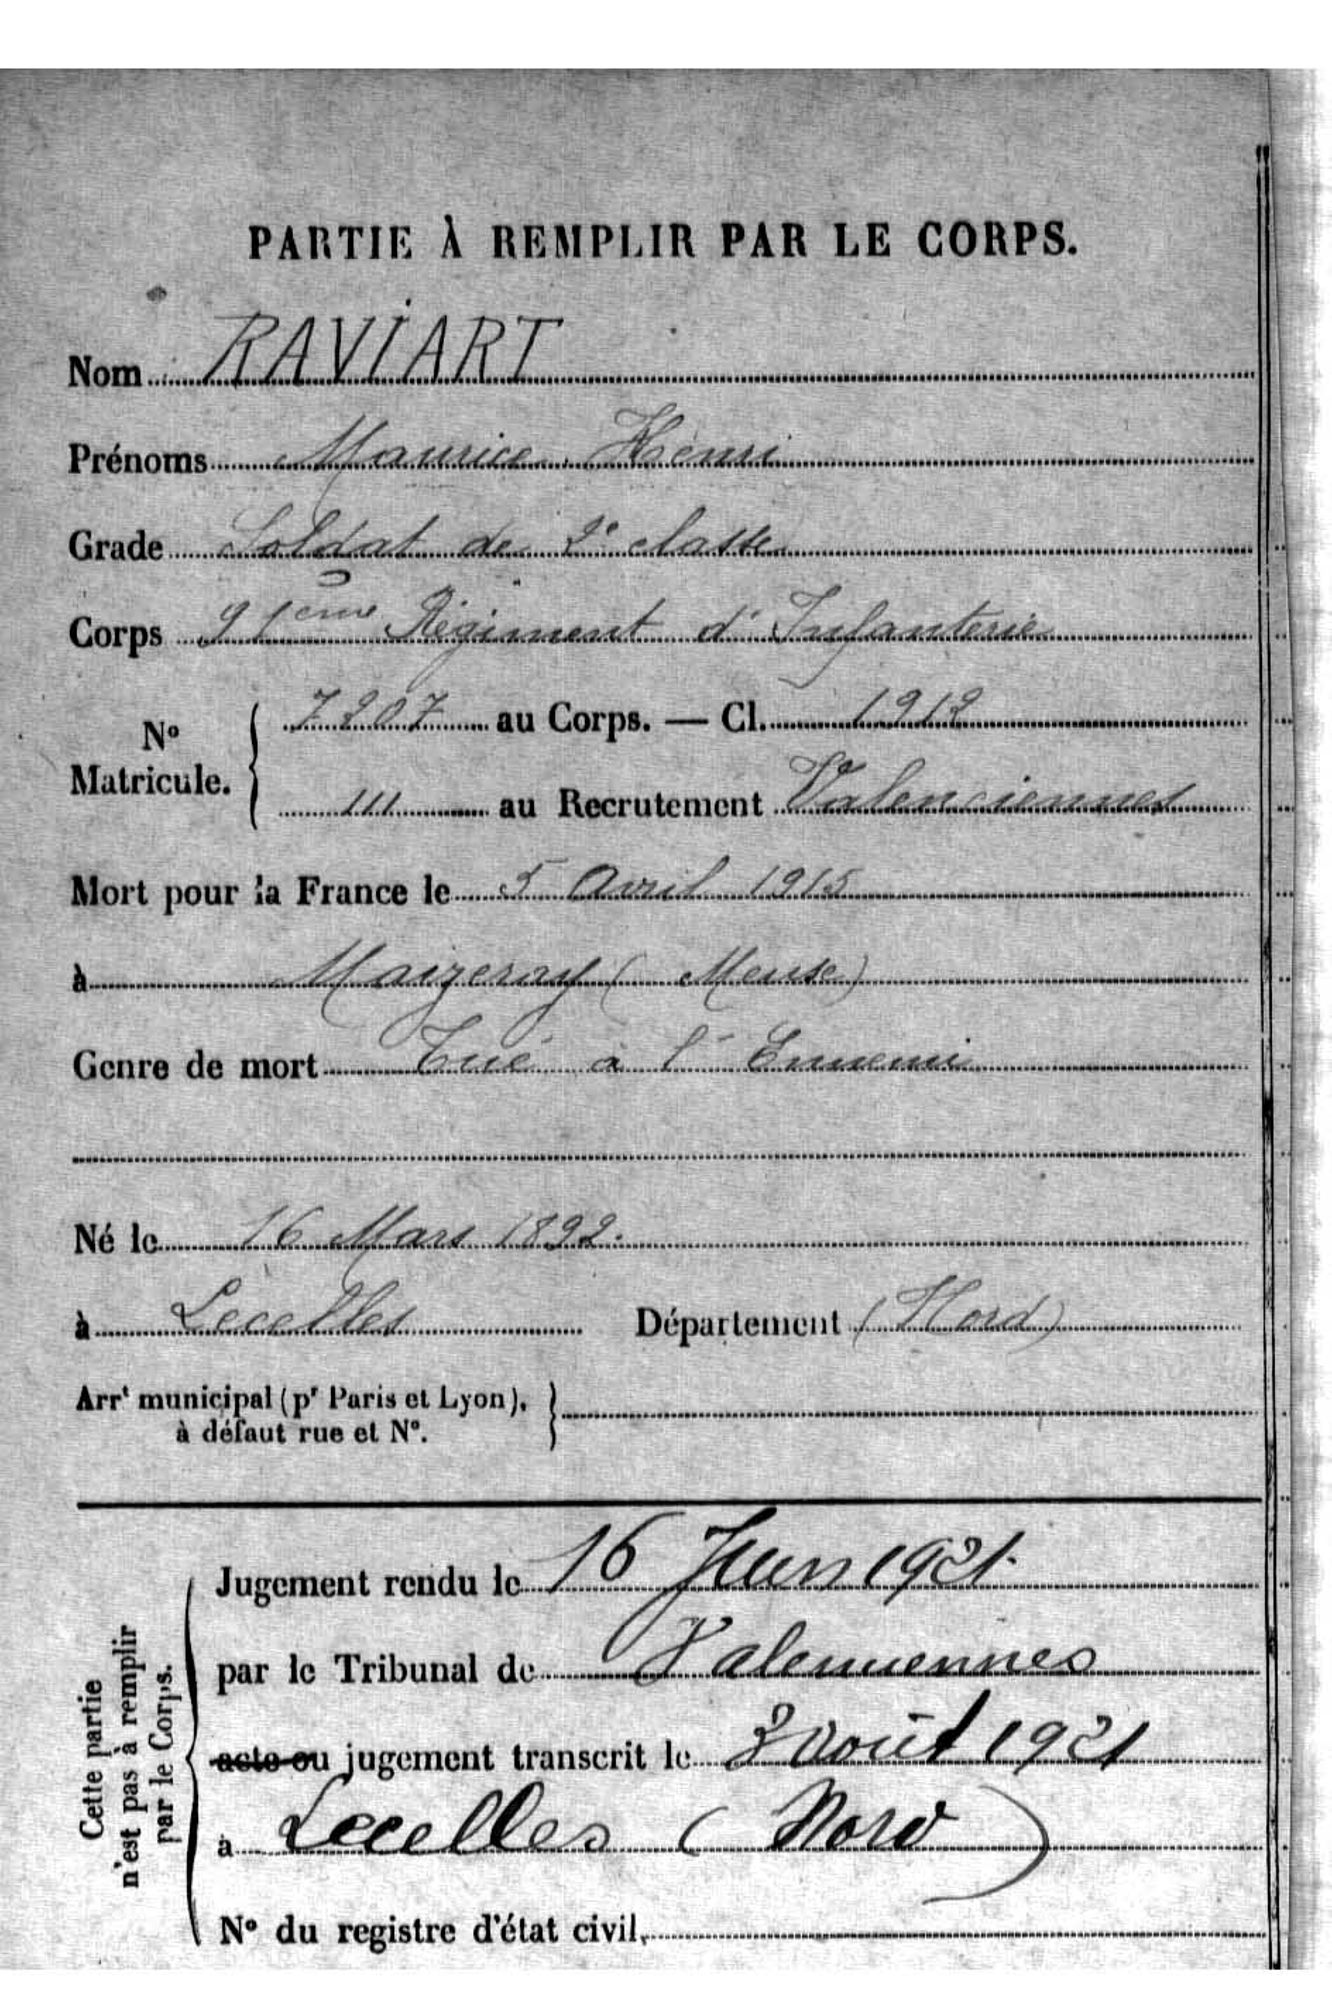 PARTIE À REMPLIR PAR LE CORPS.
Nom RAVIART
Prénoms Maurice Henri
Grade Soldat de 2e classe
Corps 91ème Régiment d'Infanterie
No Matricule. { 7207 au Corps. — Cl. 1912
111 au Recrutement Valenciennes
Mort pour la France le 5 Avril 1915
à Maizeray (Meuse)
Genre de mort Tué à l'Ennemi
Né le 16 Mars 1892.
à Lecelles Département (Nord)
Arrt municipal (pr Paris et Lyon), }
à défaut rue et No.
Cette partie
n'est pas à remplir
par le Corps.
Jugement rendu le 16 Juin 1921.
par le Tribunal de Valenciennes
acte ou jugement transcrit le 2 Août 1921
à Lecelles (Nord)
No du registre d'état civil.